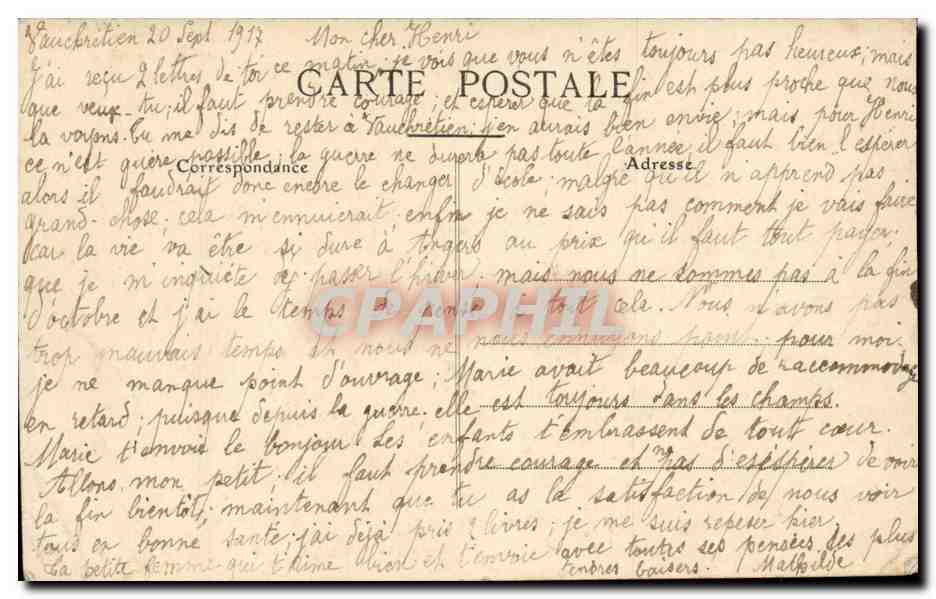 Vauchrétien 20 Sept 1917 Mon cher Henri
J'ai reçu 2 lettres de toi ce matin; je vois que vous n'êtes toujours pas heureux, mais
CARTE POSTALE
que veux-tu; il faut prendre courage; et espérer que la fin est plus proche que nous
la voyons. Tu me dis de rester à Vauchrétien; j'en aurais bien envie; mais pour Henri
ce n'est guère possible; la guerre ne durera pas toute l'année, il faut bien l'espérer
Correspondance
Adresse
alors il faudrait donc encore le changer d'école; malgré qu'il n'apprend pas
grand-chose; cela m'ennuierait; enfin je ne sais pas comment je vais faire
car la vie va être si dure à Angers au prix qu'il faut tout payer.
que je m'inquiète de passer l'hiver. mais nous ne sommes pas à la fin
d'octobre et j'ai le temps de penser à tout cela. Nous n'avons pas
CPAPHIL
trop mauvais temps et nous ne nous ennuyons pas. pour moi
je ne manque point d'ouvrage; Marie avait beaucoup de raccommodage
en retard; puisque depuis la guerre. elle est toujours dans les champs.
Marie t'envoie le bonjour les enfants t'embrassent de tout cœur.
Allons mon petit il faut prendre courage et pas désespérer de voir
la fin bientôt, maintenant que tu as la satisfaction de nous voir
tous en bonne santé; j'ai déjà pris 2 livres; je me suis peser hier
ta petite femme qui t'aime bien et t'envoie avec toutes ses pensées ses plus
tendres baisers. Mathilde